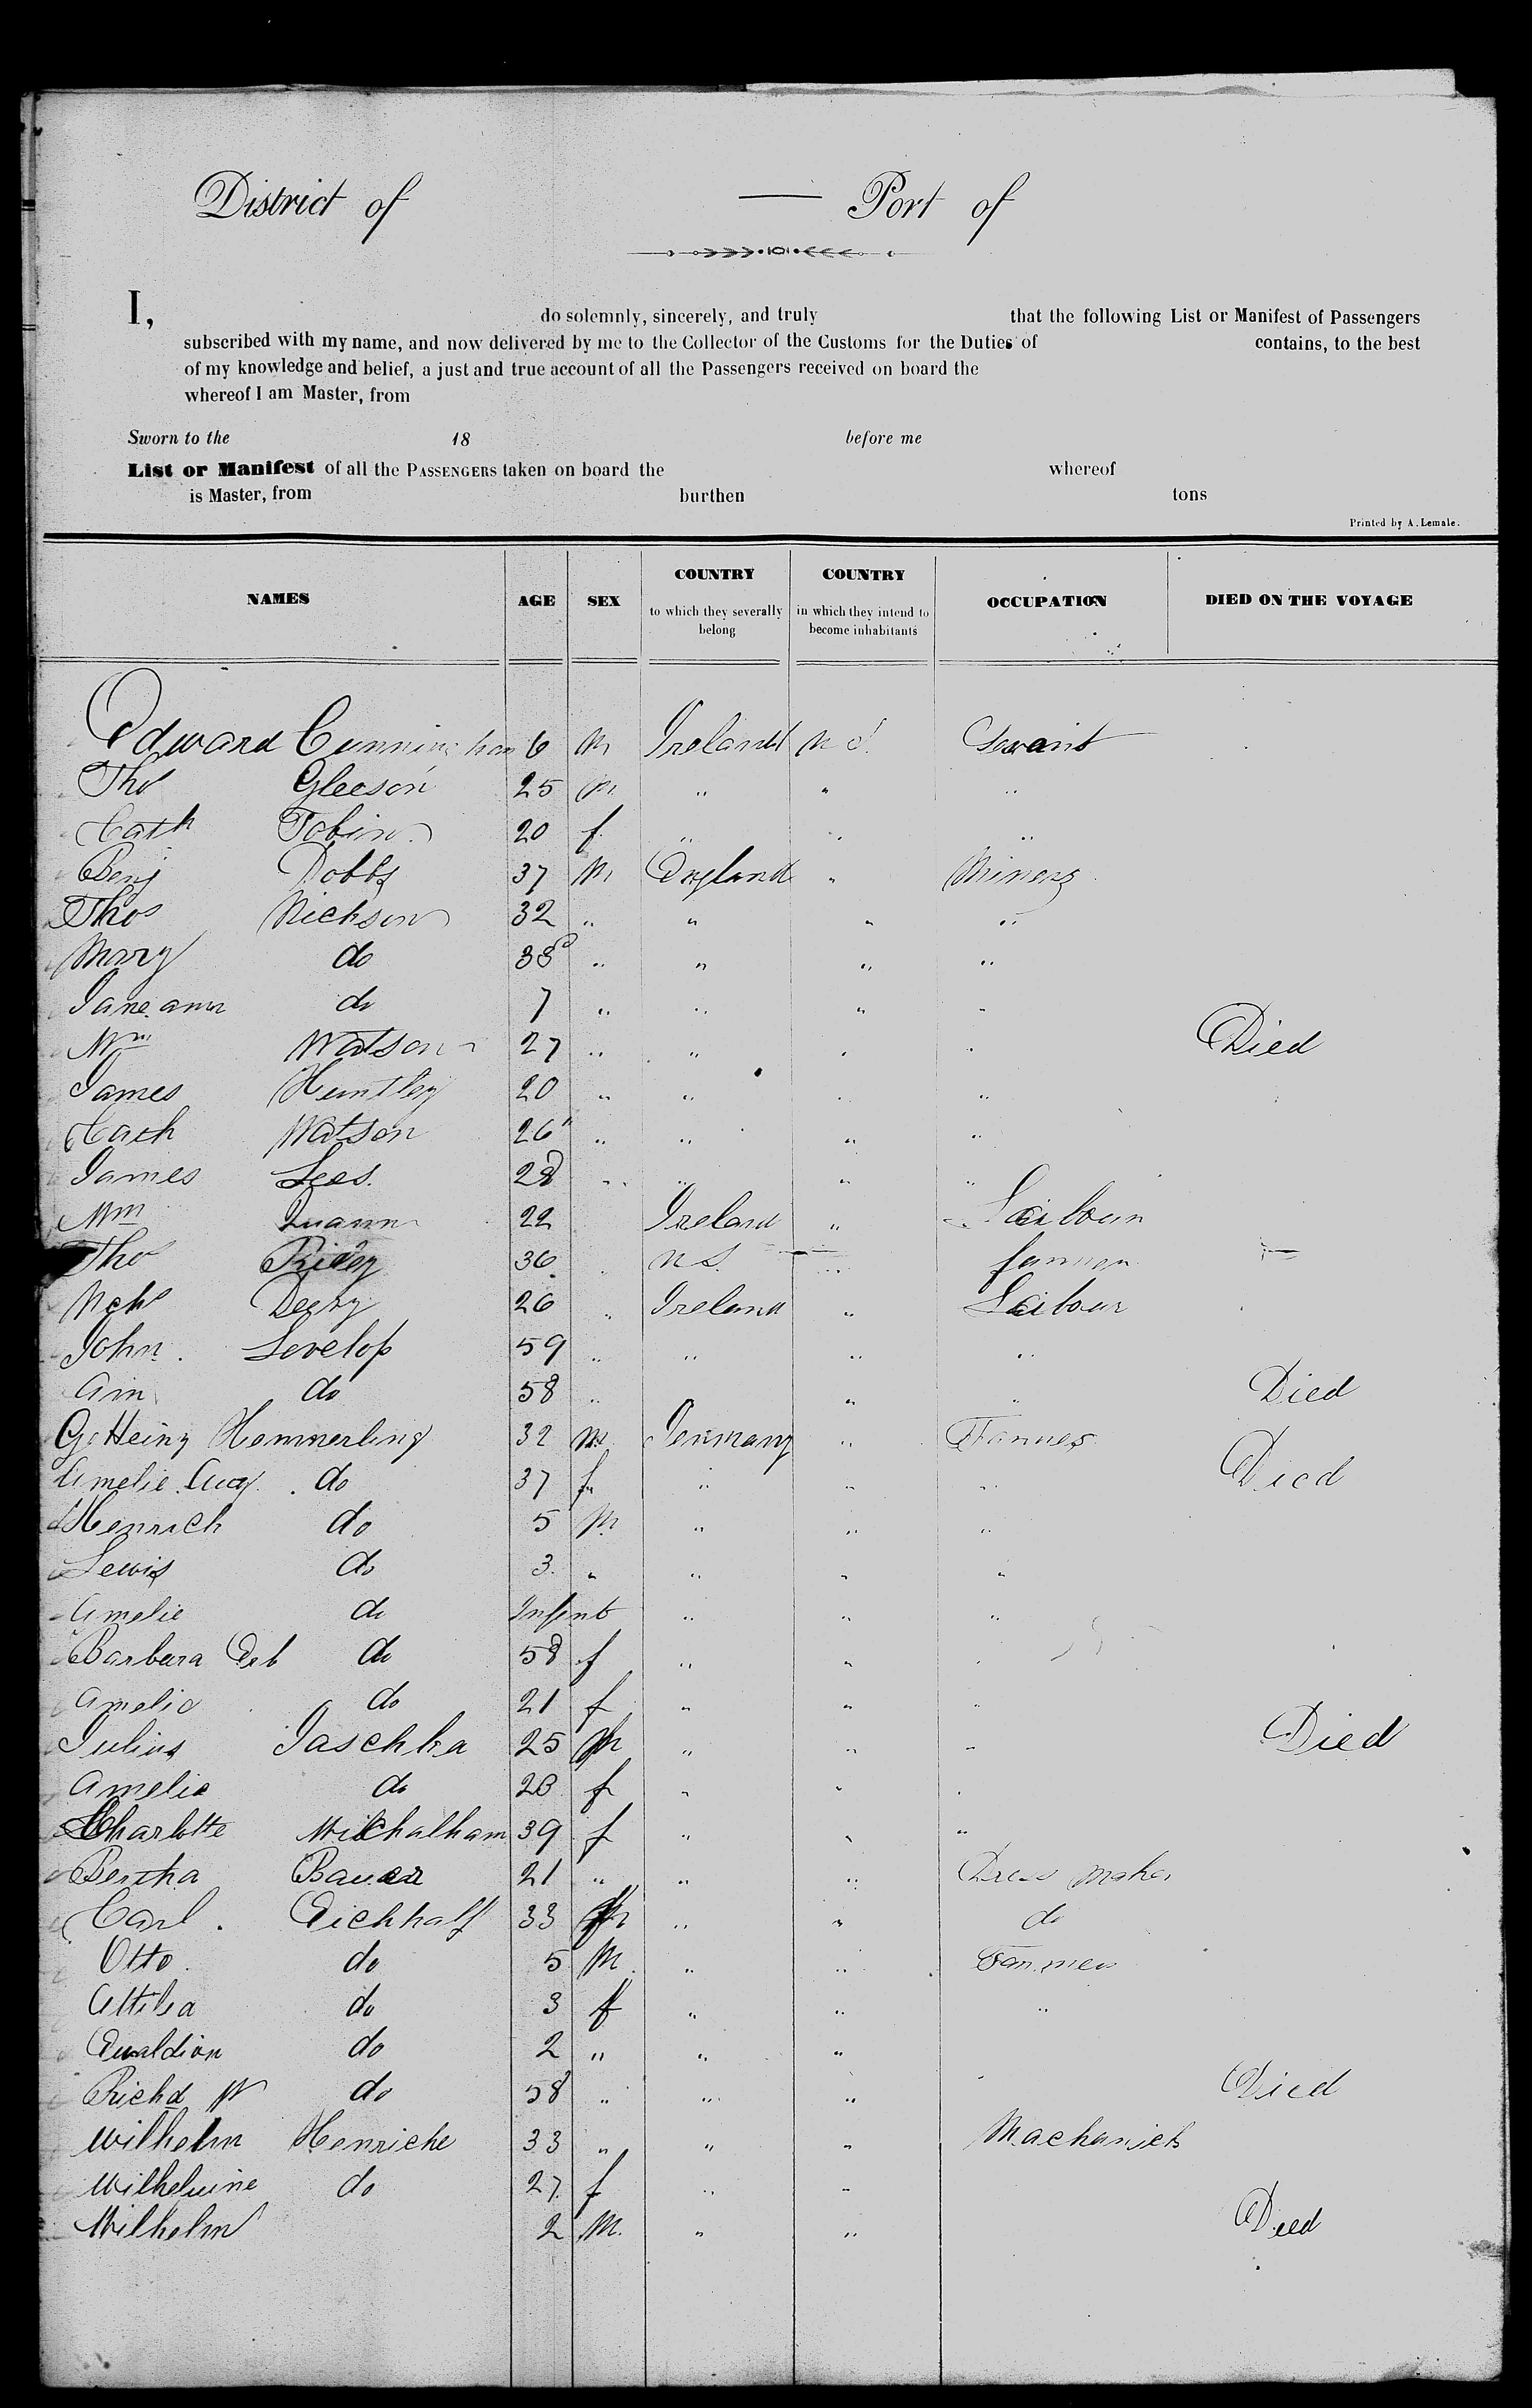 District of — Port of
I, do solemnly, sincerely, and truly that the following List or Manifest of Passengers
subscribed with my name, and now delivered by me to the Collector of the Customs for the Duties of contains, to the best
of my knowledge and belief, a just and true account of all the Passengers received on board the
whereof I am Master, from
Sworn to the 18 before me
List or Manifest of all the PASSENGERS taken on board the whereof
is Master, from burthen tons
Printed by A. Lemale.
NAMES AGE SEX COUNTRY to which they severally belong COUNTRY in which they intend to become inhabitants OCCUPATION DIED ON THE VOYAGE
Edward Cunningham 6 M Ireland Servant
Thos Gleeson 25 M " " "
Cath Tobin 20 f " " "
Benj Dobbs 37 M England " Miners
Thos Nickson 32 " " " "
Mary do 38 " " " "
Jane ann do 7 " " " "
Wm Watson 27 " " " " Died
James Huntley 20 " " " "
Cath Watson 26 " " " "
James Lees 28 " " " "
Wm 22 Ireland "
Thos 36 "
26 Ireland " Labour
John Levelop 59 " " " "
Ann do 58 " " " Died
G. Heinz Hemmerling 32 M Germany "
Amelie Aug. do 37 f " " " Died
Henrich do 5 M " " "
Lewis do 3 " " " "
Amelie do Infent " " "
Barbara do 58 f " " "
Amelia do 21 f " " "
Julius Jaschka 25 M " " " Died
Amelie do 23 f " " "
Charlotte Milchalham 39 f " " "
Bertha Bauer 21 " " " Dress Maker
Carl Eichhalf 33 M " " do
Otto do 5 M " " Farmer
do 3 f " " "
do 2 " " "
Richd W do 58 " " " " Died
Wilhelm Henriche 33 " " " Machanick
Wilhelmine do 27 f " "
Wilhelm 2 M. " " Died